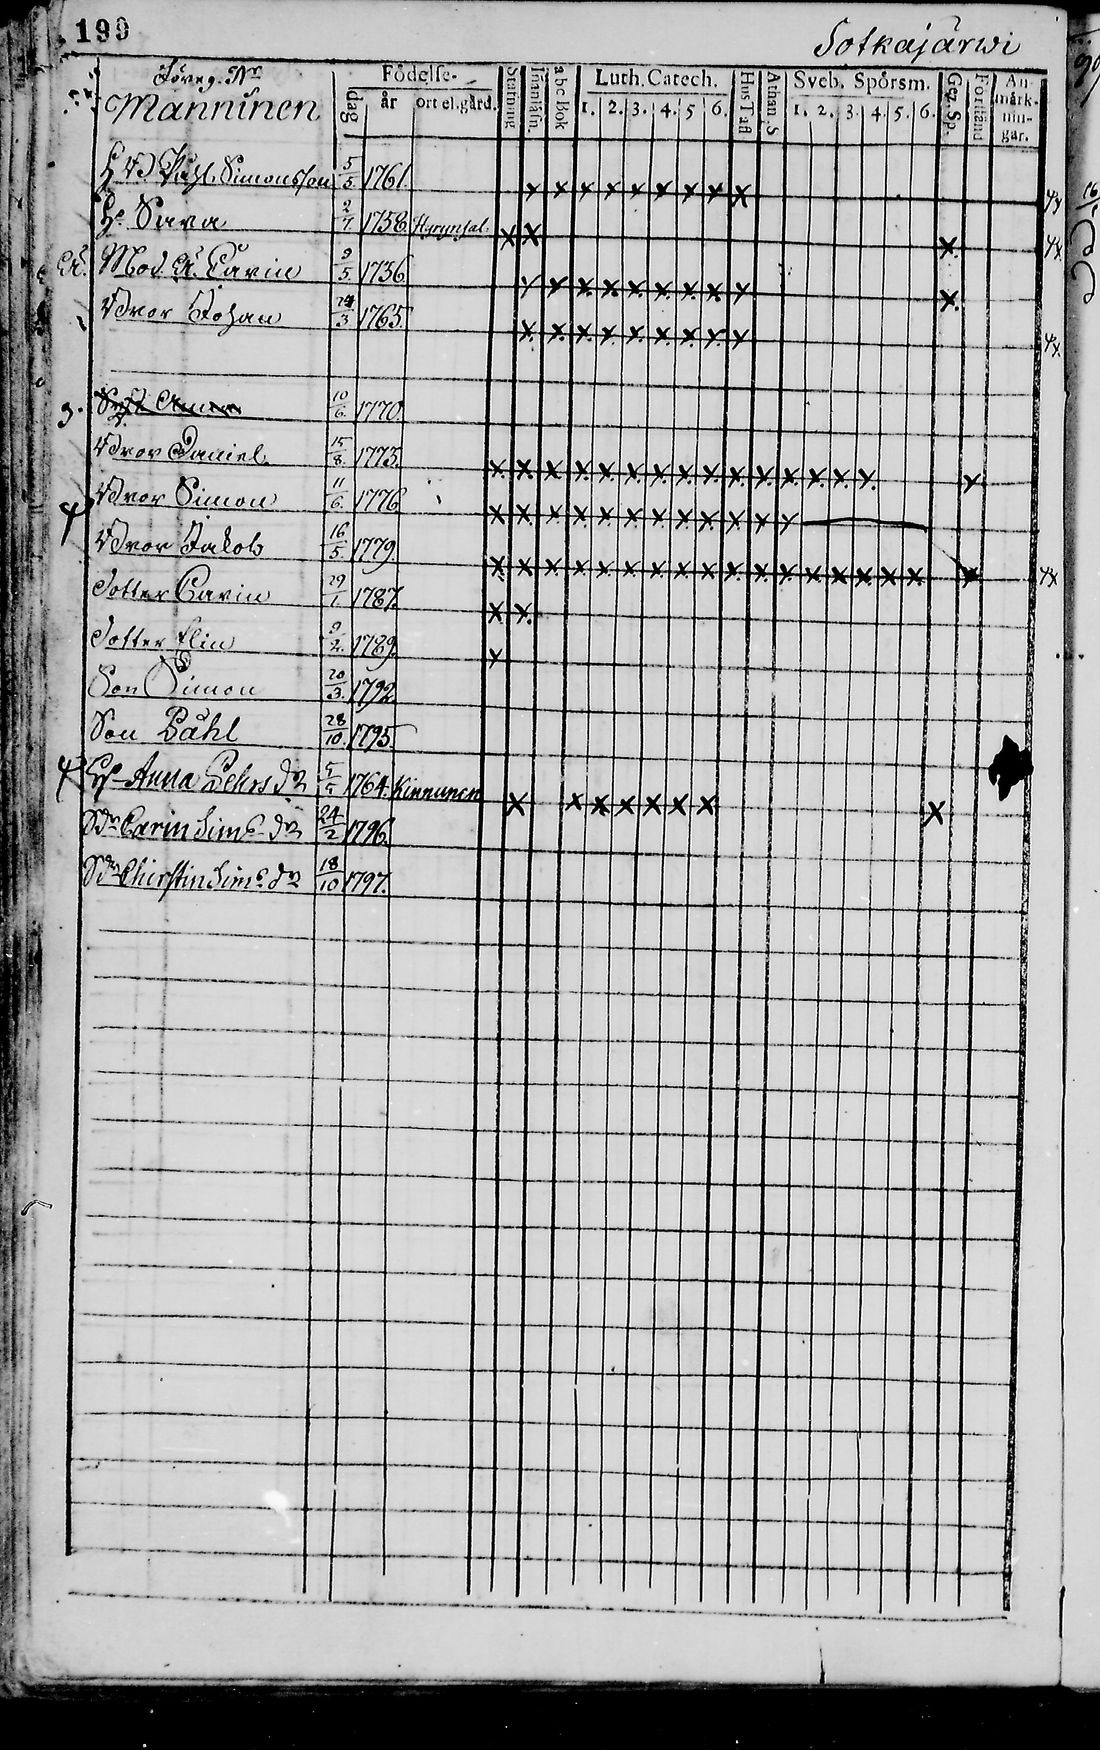 199
Sotkajärwi
Föreg. Nr
Manninen
Födelse-
dag
år
ort el. gård.
Stafning
Innanläsn.
abc Bok
Luth. Catech.
1. 2. 3. 4. 5 6.
Hus Tafl
Athan. S
Sveb. Spörsm.
1. 2. 3. 4. 5. 6.
Förstånd
An-
märk-
nin-
gar.
Simonsson 5/5 1761
Hu Sara 2/7 1758. Hyrynsal.
Mod. Ä. Carin 9/5. 1736
Bror Johan 24/3 1765.
10/6. 1770.
Bror Daniel. 15/8. 1773.
Bror Simon 11/6. 1776
Bror Jakob 16/5. 1779.
Dotter Carin 29/1. 1787.
Dotter Elin 9/2. 1789.
Son Simon 20/3. 1792.
Son Påhl 28/10. 1795.
Anna Pehrs dr 5/5 1764. Kinnunen
Carin Sims dr 24/2 1796.
Chirstin Sims dr 18/10 1797.